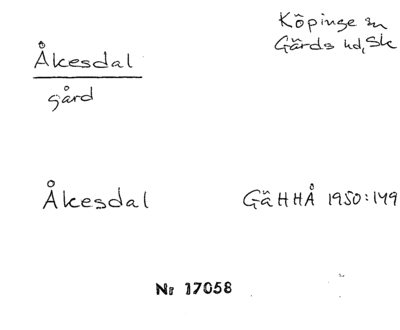 Åkesdal
gård
Köpinge sn
Gärds hd, Sk
Åkesdal
GäHHÅ 1950:149
Nr 17058